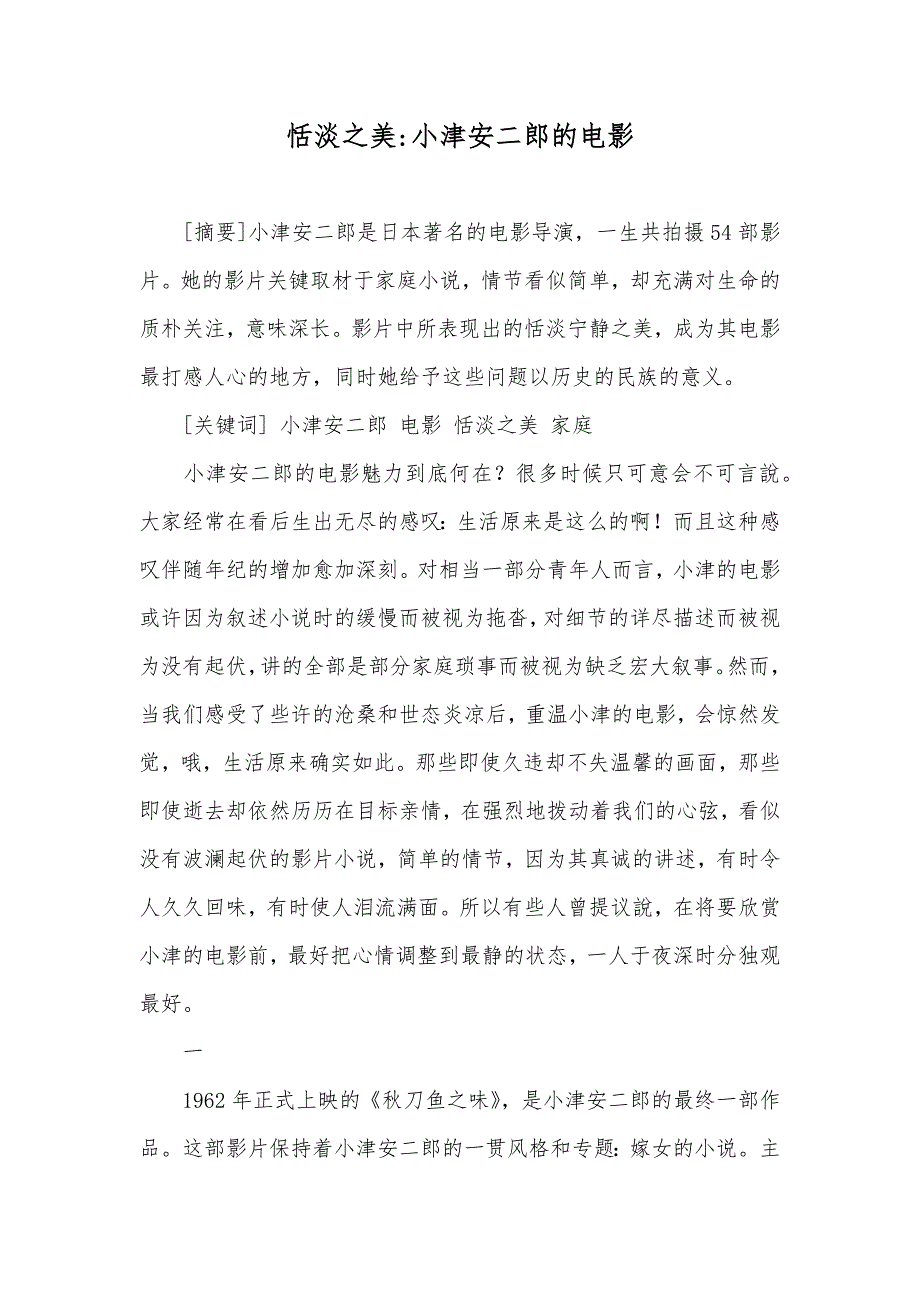 恬淡之美:小津安二郎的电影
[摘要]小津安二郎是日本著名的电影导演，一生共拍摄 54 部影
片。她的影片关键取材于家庭小说，情节看似简单，却充满对生命的
质朴关注，意味深长。影片中所表现出的恬淡宁静之美，成为其电影
最打感人心的地方，同时她给予这些问题以历史的民族的意义。
[关键词] 小津安二郎 电影 恬淡之美 家庭
小津安二郎的电影魅力到底何在？很多时候只可意会不可言說。
大家经常在看后生出无尽的感叹：生活原来是这么的啊！而且这种感
叹伴随年纪的增加愈加深刻。对相当一部分青年人而言，小津的电影
或许因为叙述小说时的缓慢而被视为拖沓，对细节的详尽描述而被视
为没有起伏，讲的全部是部分家庭琐事而被视为缺乏宏大叙事。然而，
当我们感受了些许的沧桑和世态炎凉后，重温小津的电影，会惊然发
觉，哦，生活原来确实如此。那些即使久违却不失温馨的画面，那些
即使逝去却依然历历在目标亲情，在强烈地拨动着我们的心弦，看似
没有波澜起伏的影片小说，简单的情节，因为其真诚的讲述，有时令
人久久回味，有时使人泪流满面。所以有些人曾提议說，在将要欣赏
小津的电影前，最好把心情调整到最静的状态，一人于夜深时分独观
最好。
一
1962 年正式上映的《秋刀鱼之味》，是小津安二郎的最终一部作
品。这部影片保持着小津安二郎的一贯风格和专题：嫁女的小说。主